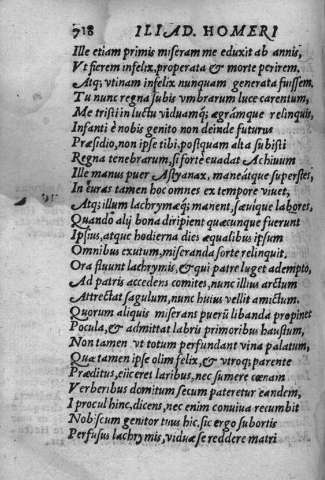 718 ILIAD. HOMERI
Ille etiam primis miseram me eduxit ab annis,
Vt fierem infelix, properata & morte perirem.
Atq; vtinam infelix nunquam generata fuissem.
Tu nunc regna subis vmbrarum luce carentum,
Me tristi in luctu viduamq; ægrámque relinquis,
Infanti è nobis genito non deinde futurus
Præsidio, non ipse tibi, postquam alta subisti
Regna tenebrarum, si fortè euadat Achiuum
Ille manus puer Astyanax, maneátque superstes,
In curas tamen hoc omnes ex tempore viuet,
Atq; illum lachrymæq; manent, sæuique labores,
Quando alij bona diripient quæcunque fuerunt
Ipsius, atque hodierna dies æqualibus ipsum
Omnibus exutum, miseranda sorte relinquit.
Ora fluunt lachrymis, & qui patre luget adempto,
Ad patris accedens comites, nunc illius arctum
Attrectat sagulum, nunc huius vellit amictum.
Quorum aliquis miserans puerū libanda propinet
Pocula, & admittat labris primoribus haustum,
Non tamen vt totum perfundant vina palatum,
Quæ tamen ipse olim felix, & vtroq; parente
Præditus, eijceret laribus, nec sumere cœnam
Verberibus domitum secum pateretur eandem,
I procul hinc, dicens, nec enim conuiua recumbit
Nobiscum genitor tuus hic, sic ergo subortis
Perfusus lachrymis, viduæ se reddere matri